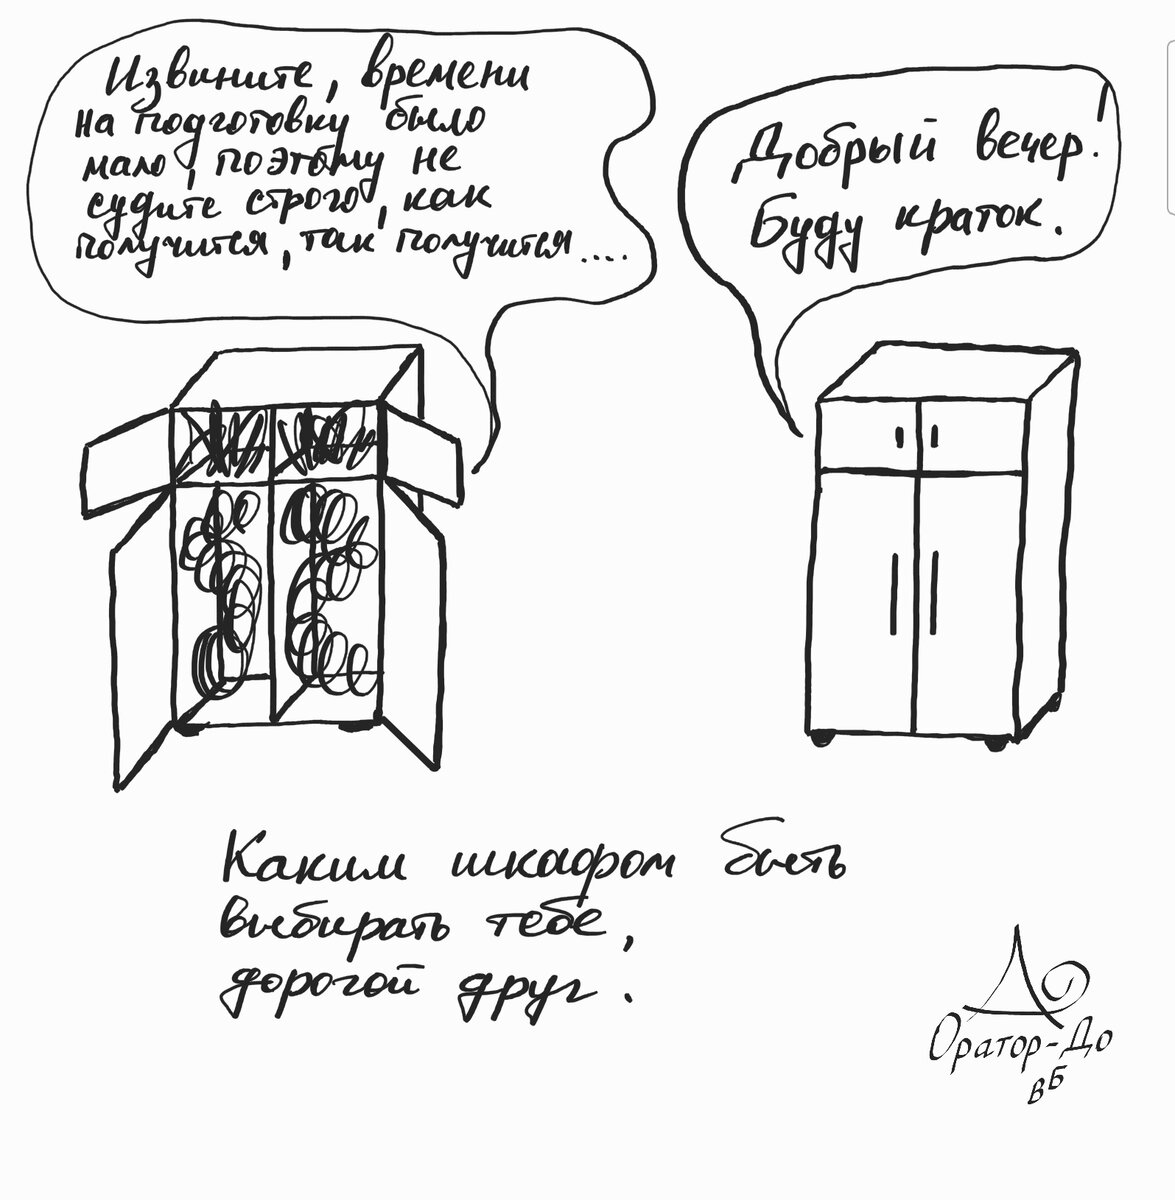 Извините, времени
на подготовку было
мало, поэтому не
судите строго, как
получится, так получится....
Добрый вечер!
Буду краток.
Каким шкафом быть
выбирать тебе,
дорогой друг.
Оратор-До
ВБ